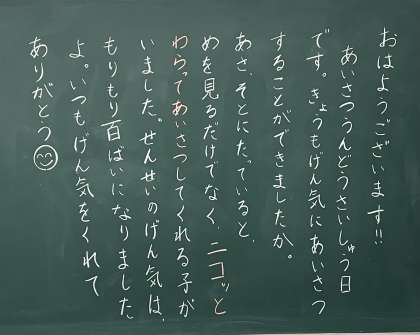 おはようございます!!
あいさつうんどうさいしゅう日
です。きょうもげん気にあいさつ
することができましたか。
あさ、そとにたっていると、
めを見るだけでなく、ニコッと
わらってあいさつしてくれる子が
いました。せんせいのげん気は、
もりもり百ばいになりました
よ。いつもげん気をくれて
ありがとう